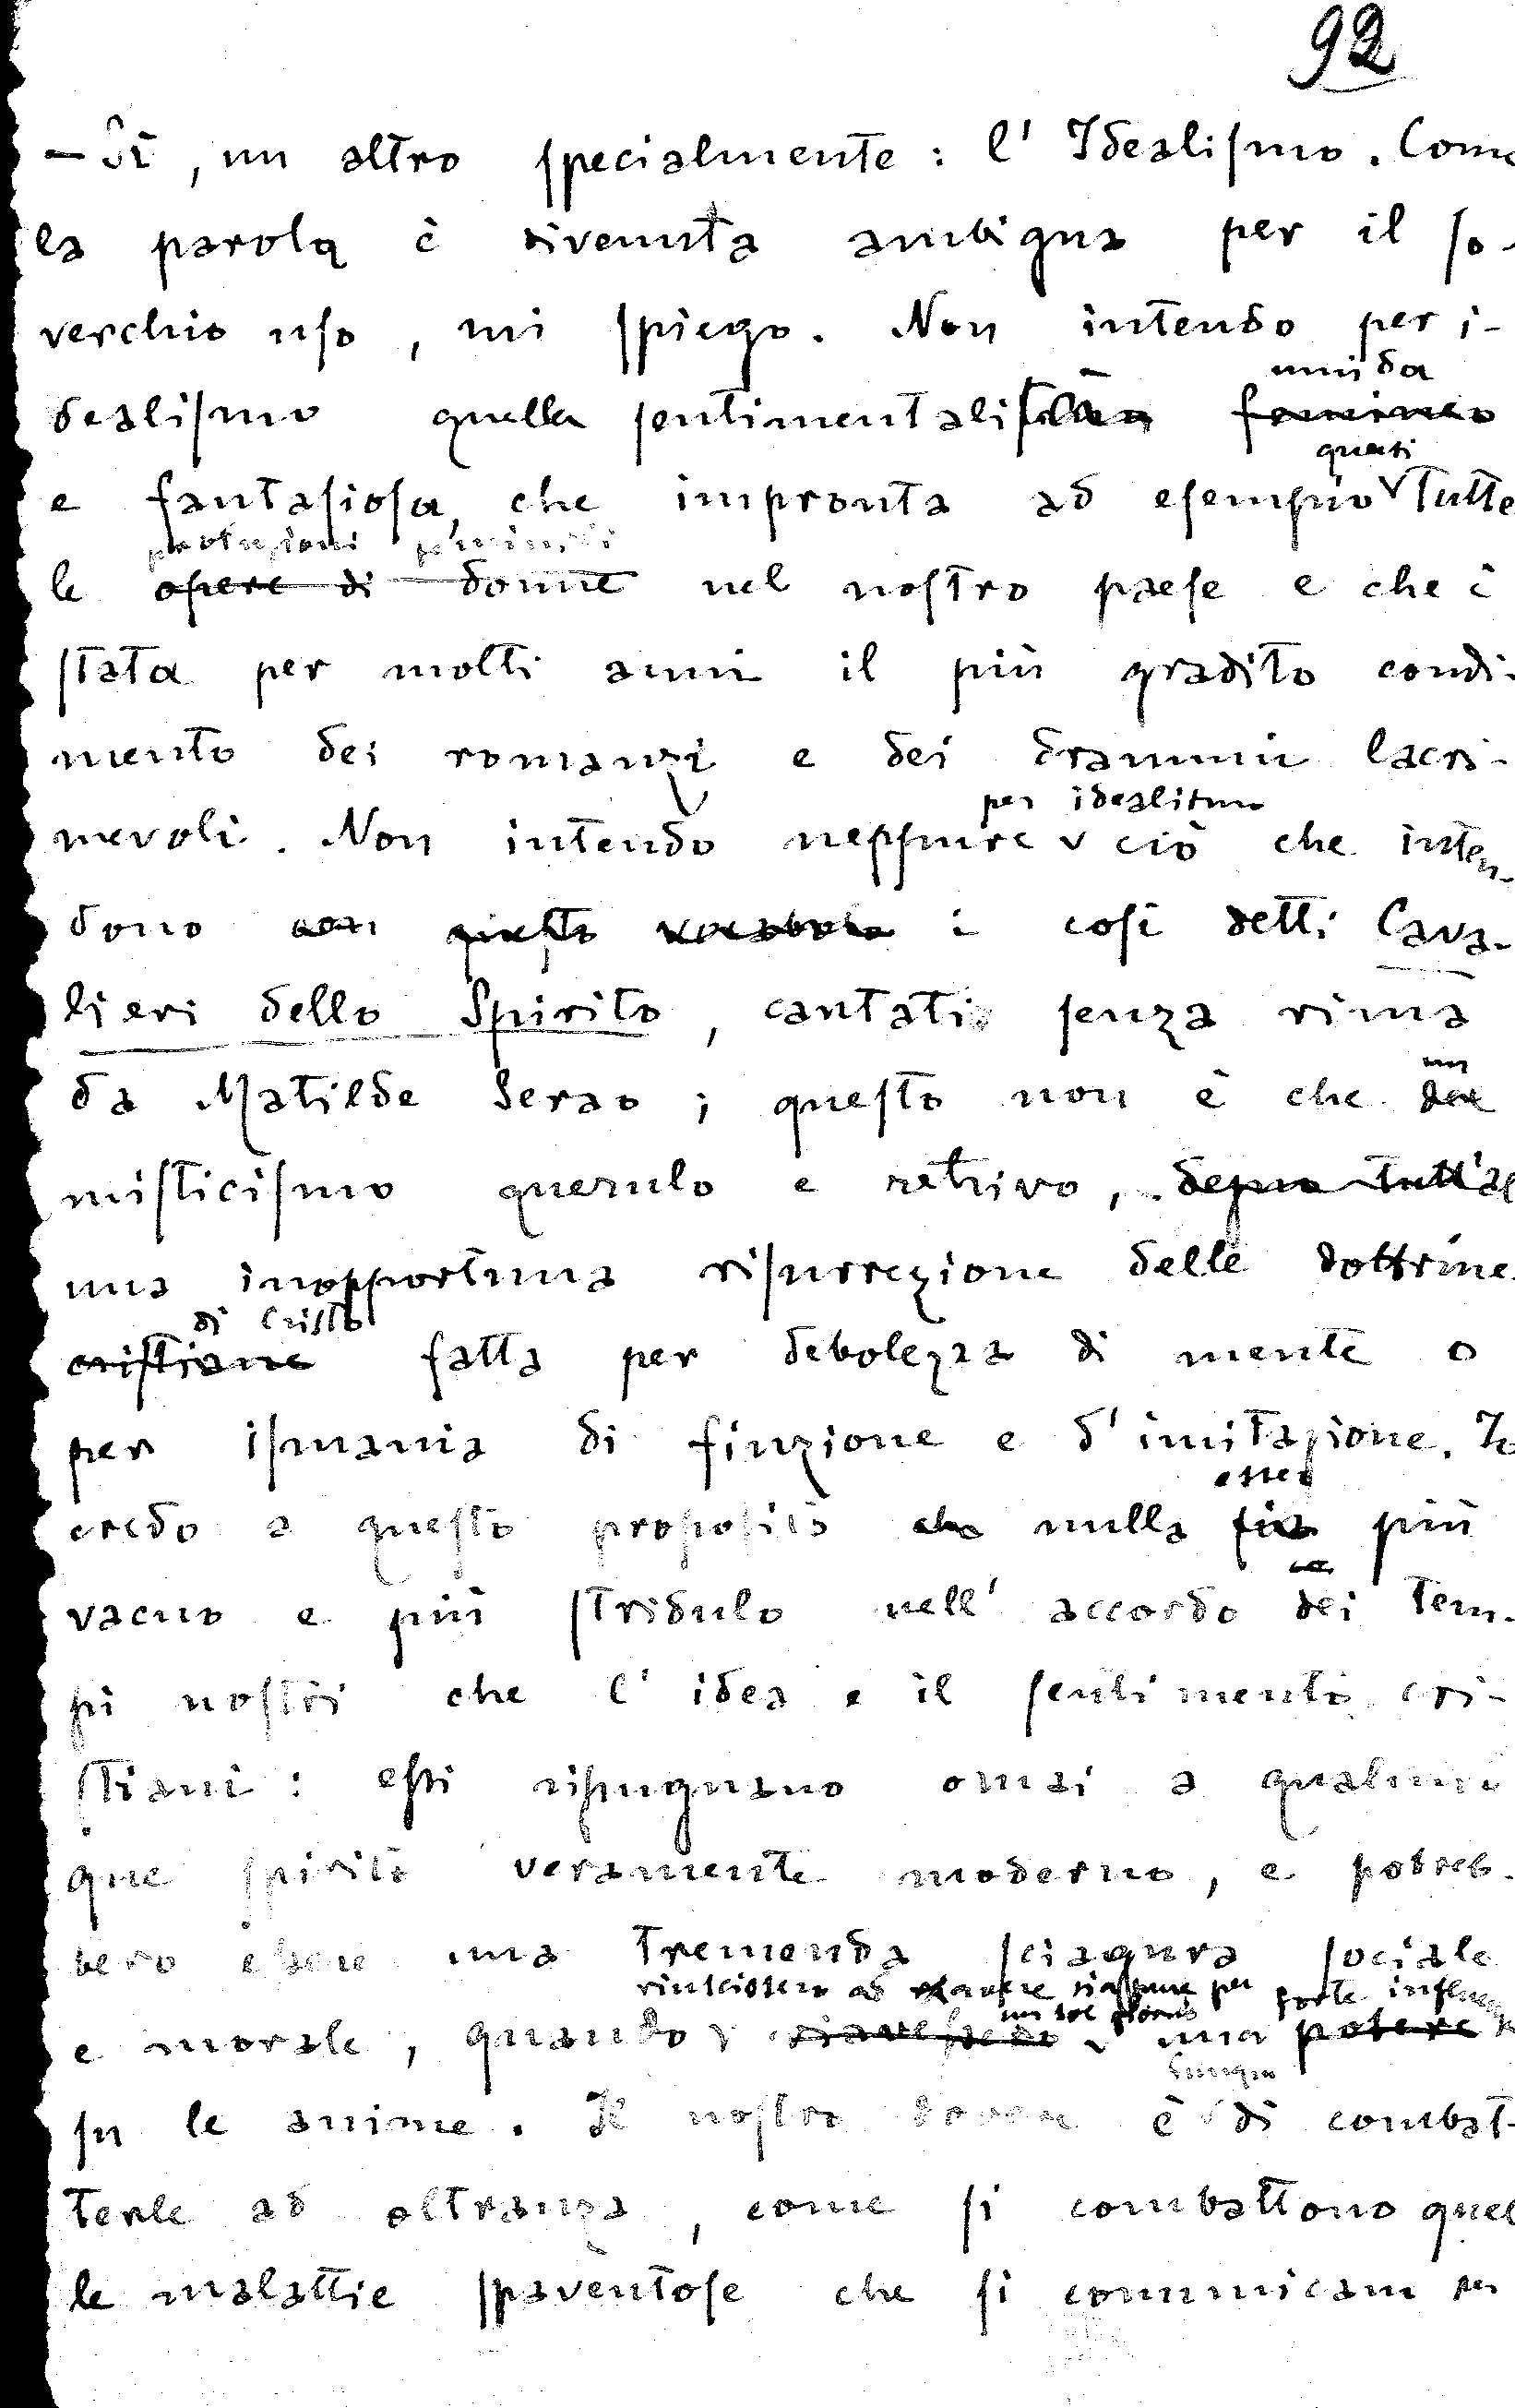 92
– Sì, un altro specialmente: l'Idealismo. Come
la parola è divenuta ambigua per il so-
verchio uso, mi spiego. Non intendo per i-
umida
dealismo quella sentimentalità feminea
quasi
e fantasiosa, che impronta ad esempio tutte
produzioni feminili
le opere di donne nel nostro paese e che è
stata per molti anni il più gradito condi-
mento dei romanzi e dei drammi lacri-
per idealismo
mevoli. Non intendo neppure ciò che inten-
dono con questo vocabolo i così detti Cava-
lieri dello Spirito, cantati senza rima
un
da Matilde Serao; questo non è che
misticismo querulo e retrivo, degno tutt'al
una inopportuna risurrezione delle dottrine
di Cristo
cristiane fatta per debolezza di mente o
per ismania di finzione e d'imitazione. Io
esser
credo a questo proposito che nulla sia più
vacuo e più stridulo nell'accordo dei tem-
pi nostri che l'idea e il sentimento cri-
stiani: essi ripugnano omai a qualun-
que spirito veramente moderno, e potreb-
bero essere una tremenda sciagura sociale
riuscissero ad avere per forte influenza
un sol giorno
e morale, quando riavessero una potere
dunque
su le anime. Il nostro dovere è di combat-
terle ad oltranza, come si combattono quel
le malattie spaventose che si comunicano per